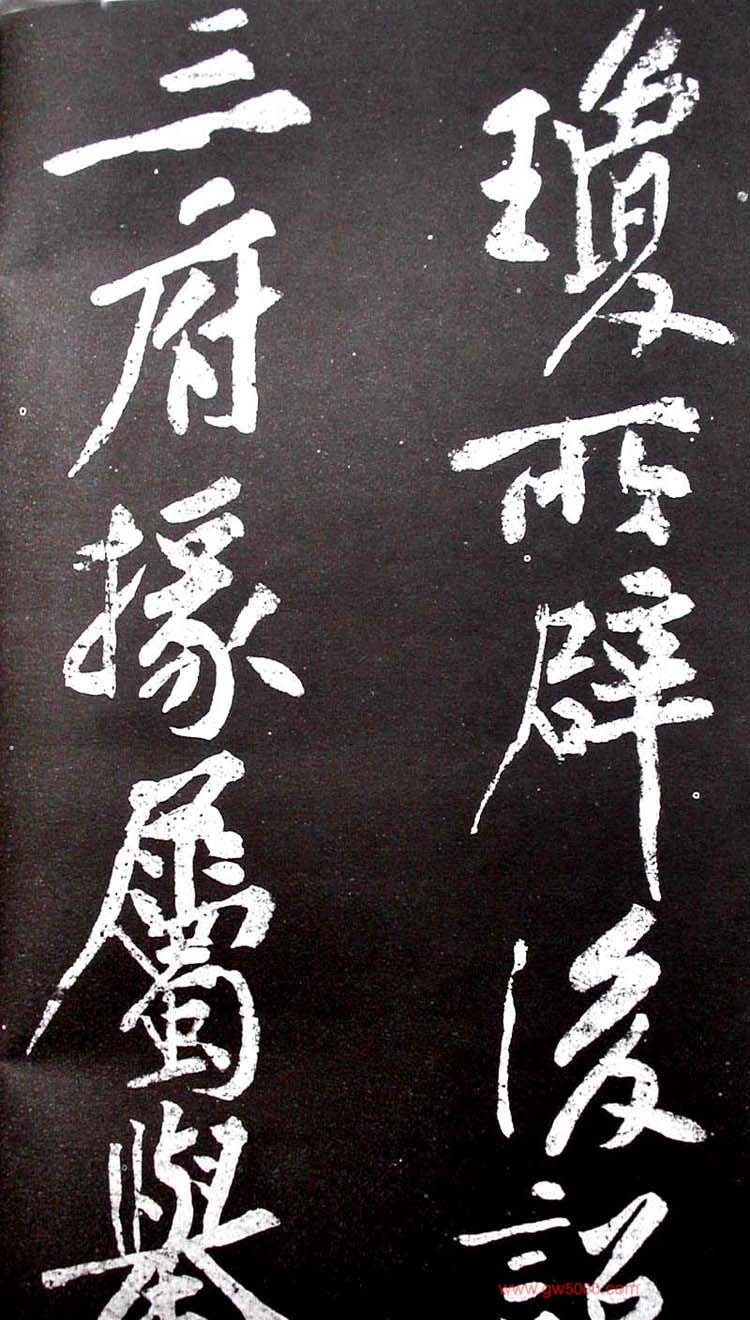 瓊所辟後詔
三府掾屬舉
www.gw5000.com